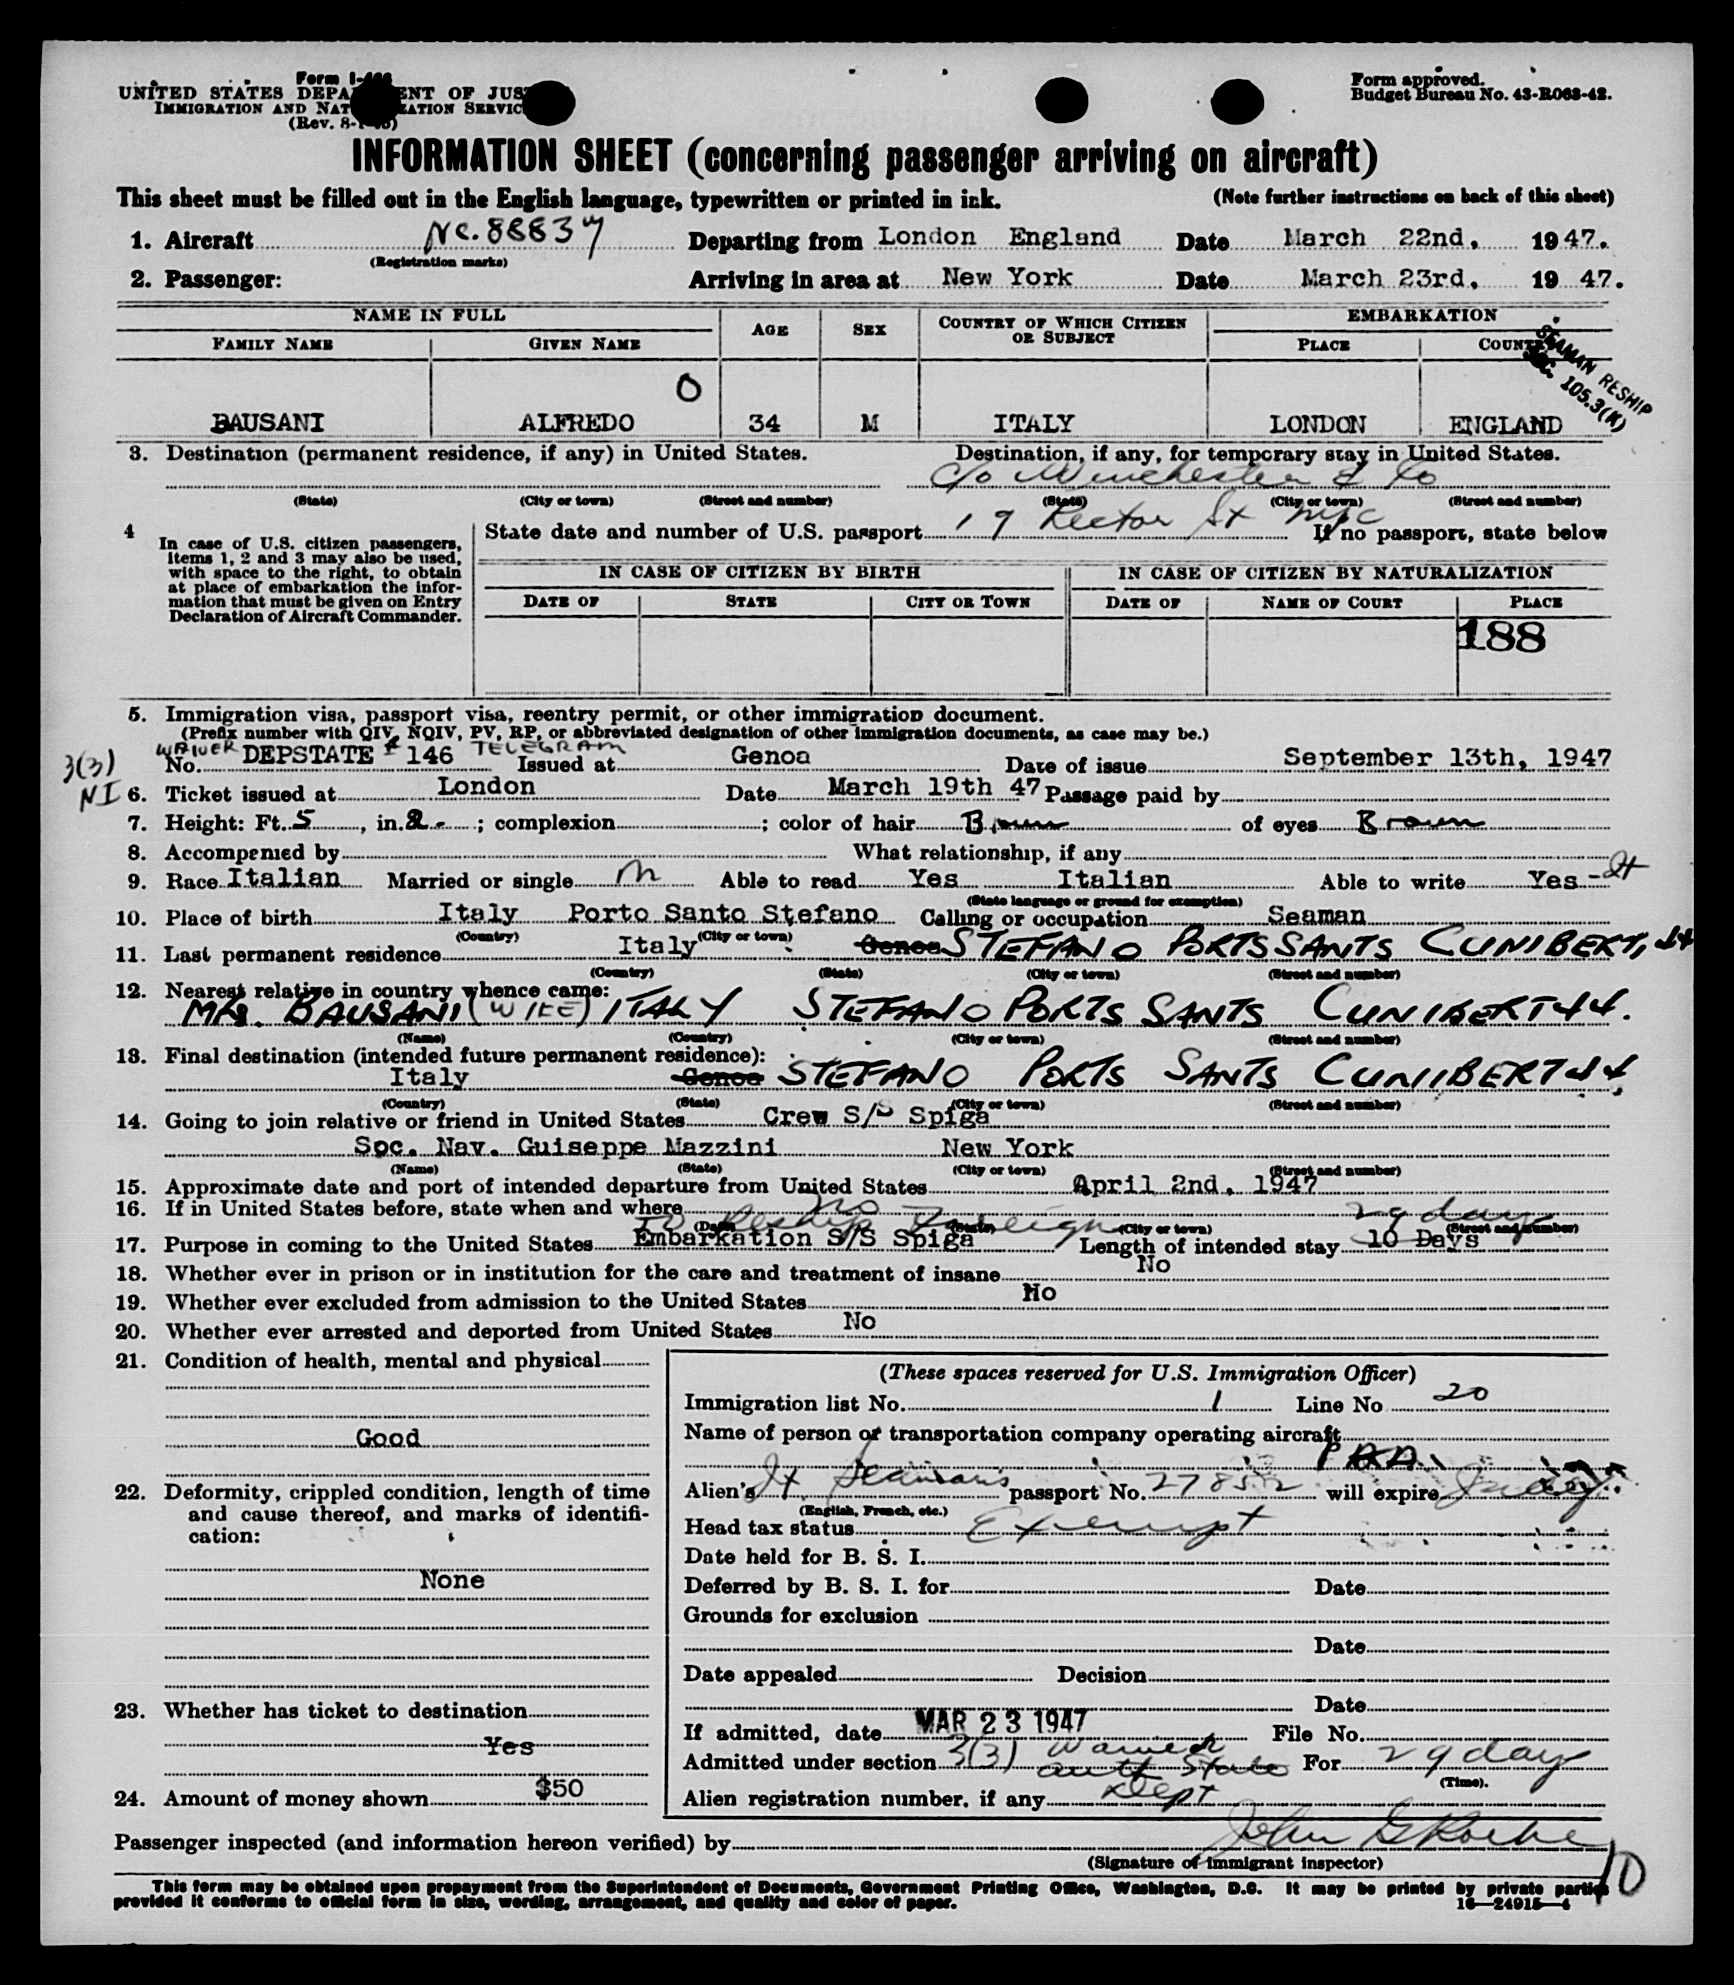 Form I-466
UNITED STATES DEPARTMENT OF JUSTICE
IMMIGRATION AND NATURALIZATION SERVICE
(Rev. 8-1-45)
Form approved.
Budget Bureau No. 43-R063-42.
INFORMATION SHEET (concerning passenger arriving on aircraft)
This sheet must be filled out in the English language, typewritten or printed in ink. (Note further instructions on back of this sheet)
1. Aircraft NC. 88837 Departing from London England Date March 22nd. 1947.
(Registration marks)
2. Passenger: Arriving in area at New York Date March 23rd. 19 47.
NAME IN FULL AGE SEX COUNTRY OF WHICH CITIZEN OR SUBJECT EMBARKATION
FAMILY NAME GIVEN NAME PLACE COUNTRY
SEAMAN RESHIP
SEC. 105.3(K)
O
BAUSANI ALFREDO 34 M ITALY LONDON ENGLAND
3. Destination (permanent residence, if any) in United States. Destination, if any, for temporary stay in United States.
c/o Winchester & Co
(State) (City or town) (Street and number) (State) (City or town) (Street and number)
4 In case of U.S. citizen passengers, Items 1, 2 and 3 may also be used, with space to the right, to obtain at place of embarkation the information that must be given on Entry Declaration of Aircraft Commander.
State date and number of U.S. passport 19 Rector St NYC If no passport, state below
IN CASE OF CITIZEN BY BIRTH IN CASE OF CITIZEN BY NATURALIZATION
DATE OF STATE CITY OR TOWN DATE OF NAME OF COURT PLACE
188
5. Immigration visa, passport visa, reentry permit, or other immigration document.
(Prefix number with QIV, NQIV, PV, RP, or abbreviated designation of other immigration documents, as case may be.)
3(3) NI
WAIVER No. DEPSTATE # 146 TELEGRAM Issued at Genoa Date of issue September 13th, 1947
6. Ticket issued at London Date March 19th 47 Passage paid by
7. Height: Ft. 5, in. 2 - ; complexion ; color of hair Brown of eyes Brown
8. Accompanied by What relationship, if any
9. Race Italian Married or single M Able to read Yes Italian Able to write Yes - It
(State language or ground for exemption)
10. Place of birth Italy Porto Santo Stefano Calling or occupation Seaman
(Country) (City or town)
11. Last permanent residence Italy Genoa STEFANO PORTS SANTS CUNIBERT, 44
(Country) (State) (City or town) (Street and number)
12. Nearest relative in country whence came:
MRS. BAUSANI (WIFE) ITALY STEFANO PORTS SANTS CUNIBERT 44.
(Name) (Country) (City or town) (Street and number)
13. Final destination (intended future permanent residence):
Italy Genoa STEFANO PORTS SANTS CUNIBERT 44,
(Country) (State) (City or town) (Street and number)
14. Going to join relative or friend in United States Crew S/S Spiga
Soc. Nav. Guiseppe Mazzini New York
(Name) (State) (City or town) (Street and number)
15. Approximate date and port of intended departure from United States April 2nd, 1947
16. If in United States before, state when and where No
(Date) (State) (City or town) (Street and number)
To Reship Foreign 29 days
17. Purpose in coming to the United States Embarkation S/S Spiga Length of intended stay 10 Days
18. Whether ever in prison or in institution for the care and treatment of insane No
19. Whether ever excluded from admission to the United States No
20. Whether ever arrested and deported from United States No
21. Condition of health, mental and physical
Good
22. Deformity, crippled condition, length of time
and cause thereof, and marks of identifi-
cation:
None
23. Whether has ticket to destination
Yes
24. Amount of money shown $50
(These spaces reserved for U.S. Immigration Officer)
Immigration list No. 1 Line No 20
Name of person or transportation company operating aircraft
PAA
Alien's It Seaman's passport No. 27852 will expire
(English, French, etc.)
Head tax status Exempt
Date held for B. S. I.
Deferred by B. S. I. for Date
Grounds for exclusion
Date
Date appealed Decision
Date
If admitted, date MAR 23 1947 File No.
Admitted under section 3(3) Waived auth State For 29 days
(Time).
Alien registration number, if any Dept
Passenger inspected (and information hereon verified) by John G Roche
(Signature of immigrant inspector)
10
This form may be obtained upon prepayment from the Superintendent of Documents, Government Printing Office, Washington, D.C. It may be printed by private parties
provided it conforms to official form in size, wording, arrangement, and quality and color of paper. 16—24915—4